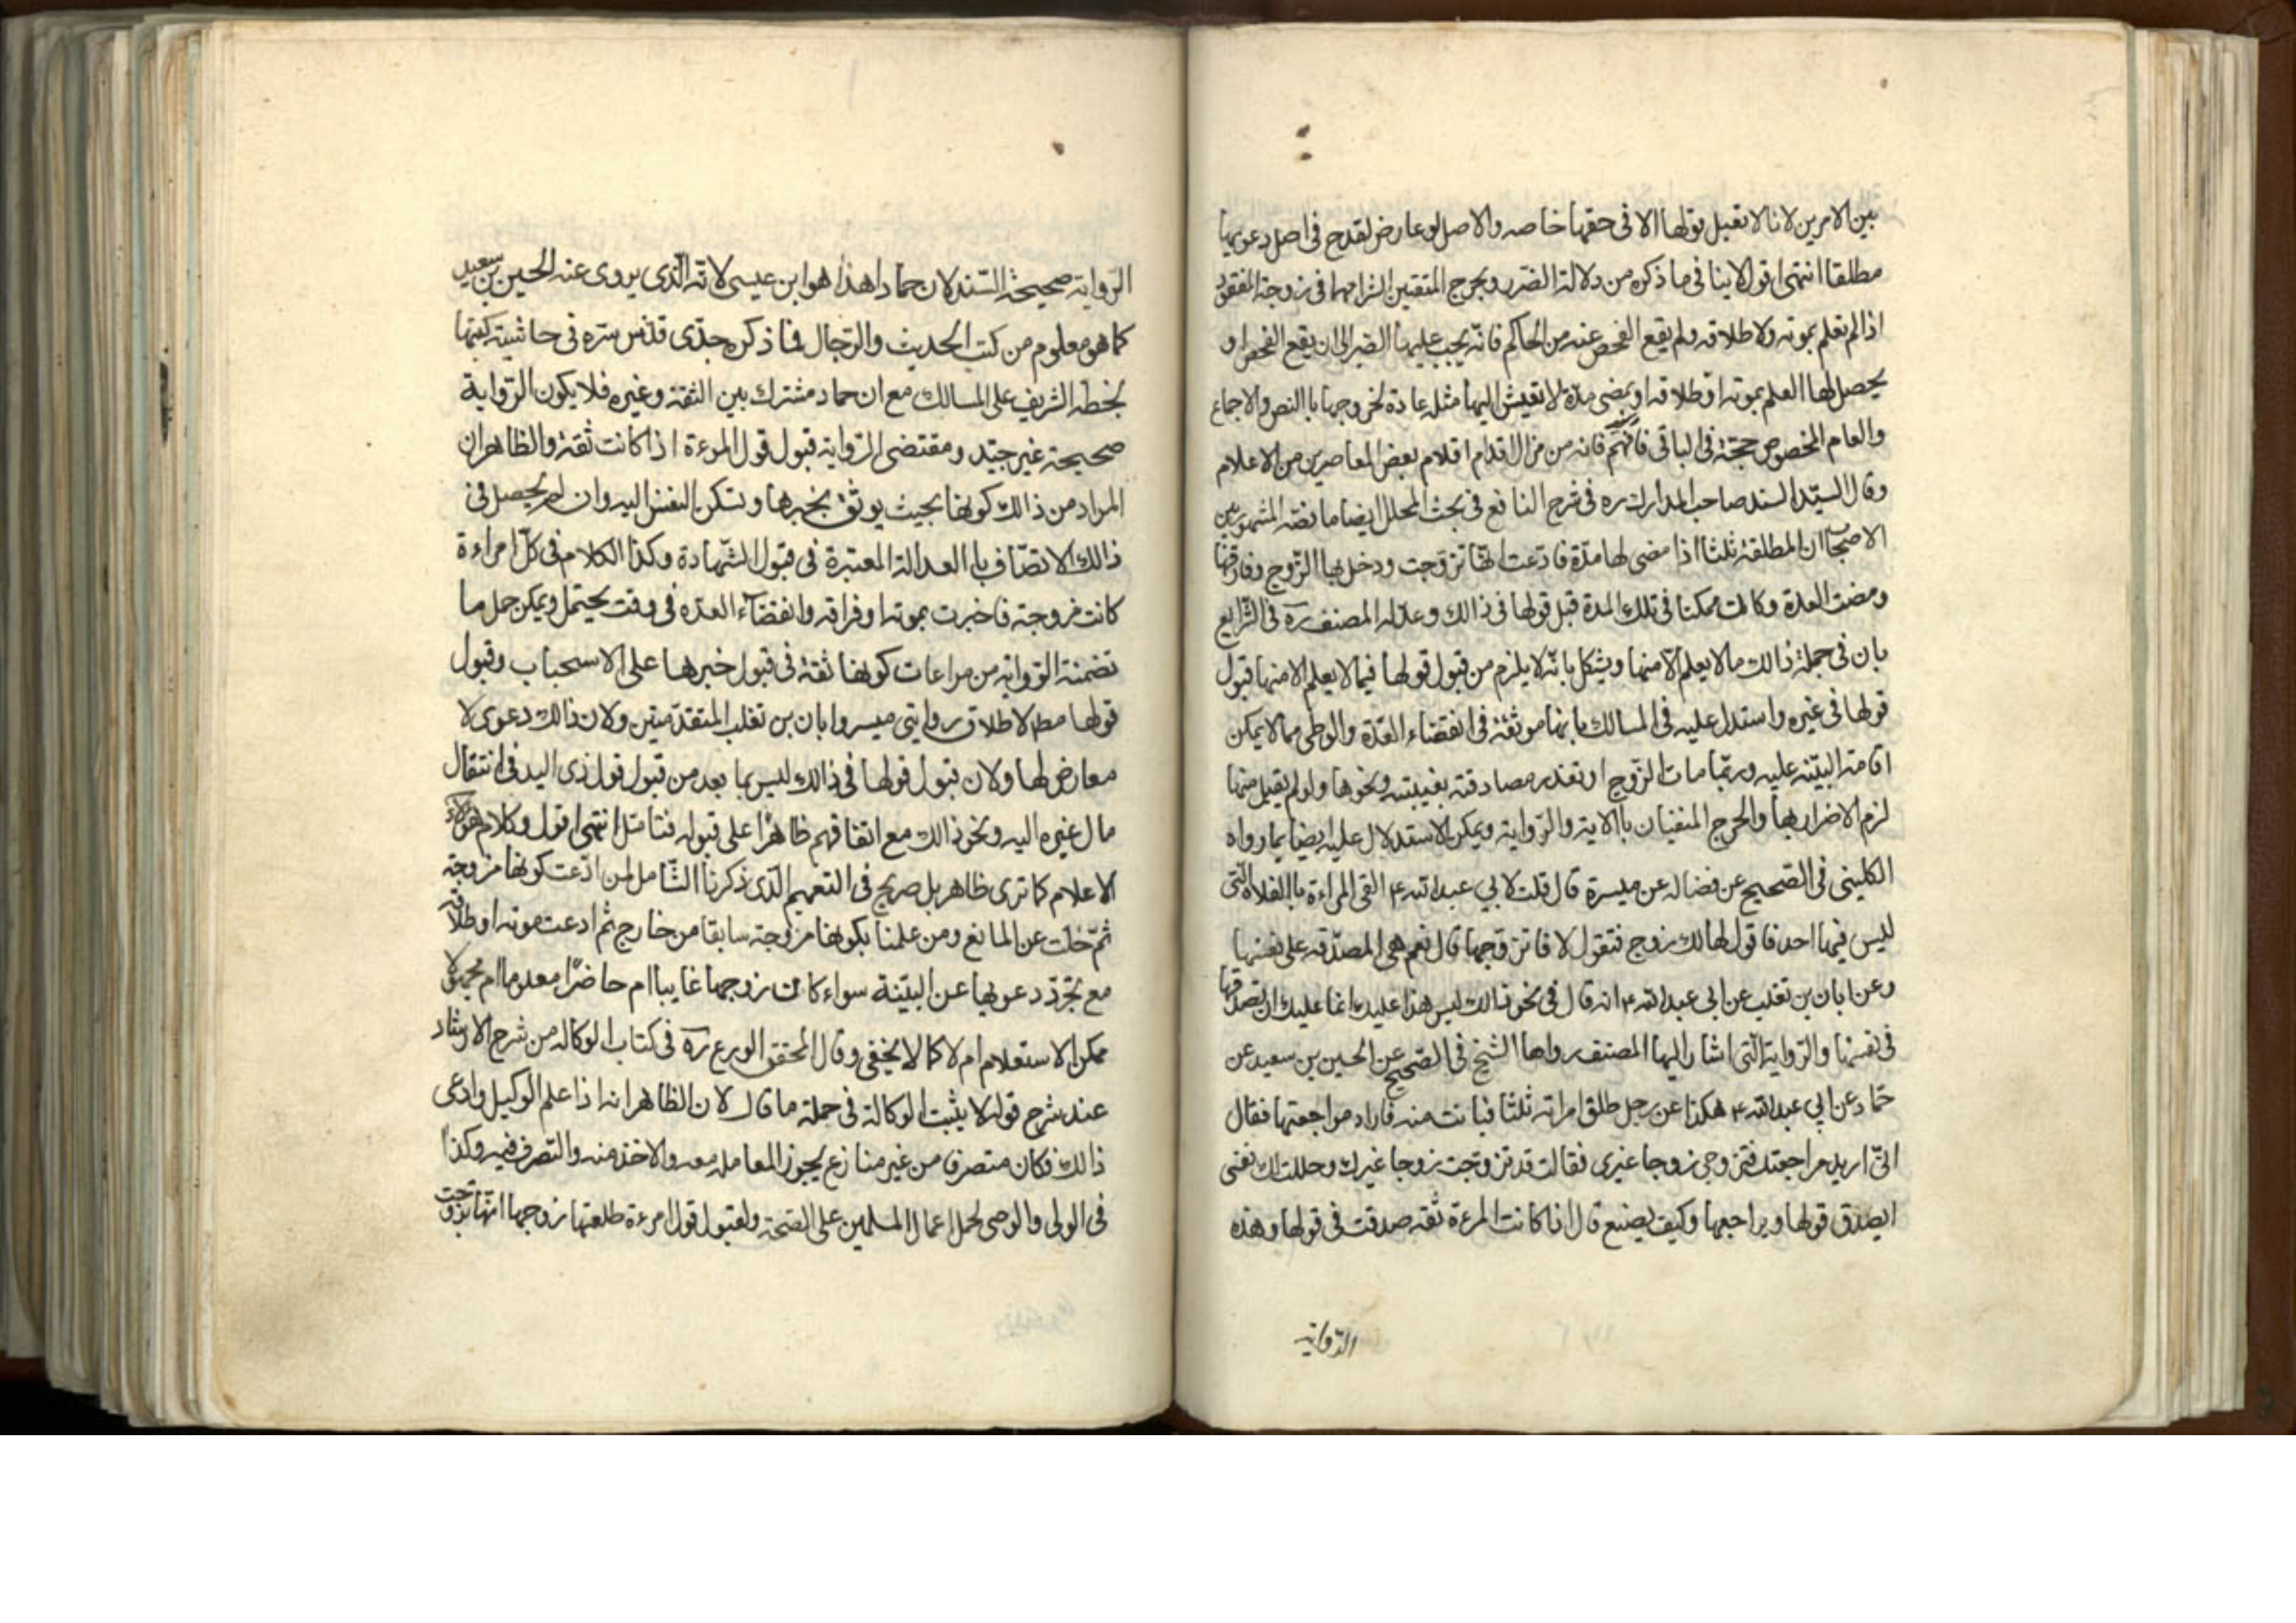 بين الامرين لانا لا نقبل قولها الا فى حقها خاصه والاصل لو عارض لقدح فى اصل دعويها
مطلقا انتهى اقول لا ينافى ما ذكره من دلالة الضرر وبحرج المنفيين التزامها فى زوجة المفقود
اذا لم تعلم بموته ولا طلاقه ولم يقع الفحص عنه من الحاكم فانه يجب عليها الصبر الى ان يقع الفحص او
يحصل لها العلم بموته او طلاقه او يمضى مدة لا تعيش اليها مثله عادة لخروجها باالنص والاجماع
والعام المخصوص حجة فى الباقى فافهم فانه من مزال اقدام اقلام بعض المعاصرين من الاعلام
وقال السيد السند صاحب المدارك ره فى شرح النافع فى بحث المحلل ايضا ما نصه المشهور بين
الاصحاب ان المطلقة ثلثا اذا مضى لها مدة فادعت انها تزوجت ودخل بها الزوج وفارقها
ومضت العدة وكان ممكنا فى تلك المدة قبل قولها فى ذالك وعلله المصنف ره فى الشرايع
بان فى جملة ذالك ما لا يعلم الا منها ويشكل بانه لا يلزم من قبول قولها فيما لا يعلم الا منها قبول
قولها فى غيره واستدل عليه فى المسالك بانها موثقة فى انقضاء العدة والوطى مما لا يمكن
اقامة البينه عليه وربما مات الزوج او تعذر مصادقته بغيبته ونحوها ولو لم يقبل منها
لزم الاضرار بها والحرج المنفيان باالاية والرواية ويمكن الاستدلال عليه ايضا بما رواه
الكلينى فى الصحيح عن فضاله عن ميسرة قال قلت لابي عبدالله ع القى المراءة باالفلاة التى
ليس فيها احد فاقول لها لك زوج فتقول لا فاتزوجها قال نعم هى المصدقه على نفسها
وعن ابان بن تغلب عن ابى عبدالله ع انه قال فى نحو ذالك ليس هذا عليك انما عليك ان تصدقها
فى نفسها والرواية التى اشار اليها المصنف رواها الشيخ فى الصحيح عن الحسين بن سعيد عن
حماد عن ابي عبدالله ع هكذا عن رجل طلق امراته ثلثا فبانت منه فاراد مراجعتها فقال
انى اريد مراجعتك فتزوجى زوجا غيرى فقالت قد تزوجت زوجا غيرك وحللت لك نفسى
ايصدق قولها ويراجعها وكيف يصنع قال اذا كانت المرءة ثقه صدقت فى قولها وهذه
الرواية
الرواية صحيحة السند لان حمادا هذا هو ابن عيسى لانه الذى يروى عنه الحسين بن سعيد
كما هو معلوم من كتب الحديث والرجال فما ذكره جدى قدس سره فى حاشية كتبها
بخطه الشريف على المسالك مع ان حماد مشترك بين الثقة وغيره فلا يكون الرواية
صحيحة غير جيد ومقتضى الرواية قبول قول المرءة اذا كانت ثقة والظاهر ان
المراد من ذالك كونها بحيث يوثق بخبرها وتسكن النفس اليه وان لم يحصل فى
ذالك الاتصاف باالعدالة المعتبرة فى قبول الشهادة وكذا الكلام فى كل امراءة
كانت مزوجة فاخبرت بموته او فراقه وانقضآء العده فى وقت يحتمل ويمكن حمل ما
تضمنته الرواية من مراعات كونها ثقة فى قبول خبرها على الاستحباب وقبول
قولها مطلا لاطلاق روايتى ميسر وابان بن تغلب المتقدمتين ولان ذالك دعوى لا
معارض لها ولان قبول قولها فى ذالك ليس بما بعد من قبول قول ذى اليد فى انتقال
مال غيره اليه ونحو ذالك مع اتفاقهم ظاهرًا على قبوله فتامل انتهى اقول وكلام هؤلاء
الاعلام كما ترى ظاهر بل صريح فى التعميم الذى ذكرنا الشامل لمن ادعت كونها مزوجة
ثم خلت عن المانع ومن علمنا بكونها مزوجة سابقا من خارج ثم ادعت موته او طلاقه
مع تجرد دعويها عن البينة سواء كان زوجها غايبا ام حاضرًا معلوما ام مجهولا
ممكن الاستعلام ام لا كما لا يخفى وقال المحقق الورع ره فى كتاب الوكاله من شرح الارشاد
عند شرح قوله لا يثبت الوكالة فى جملة ما قال لان الظاهر انه اذا علم الوكيل وادعى
ذالك فكان متصرفا من غير منازع يجوز المعامله معه والاخذ منه والتصرف فيه وكذا
فى الولى والوصى لحمل اعمال المسلمين على الصحة ولقبول قول امرءة طلقتها زوجها انها تزوجت